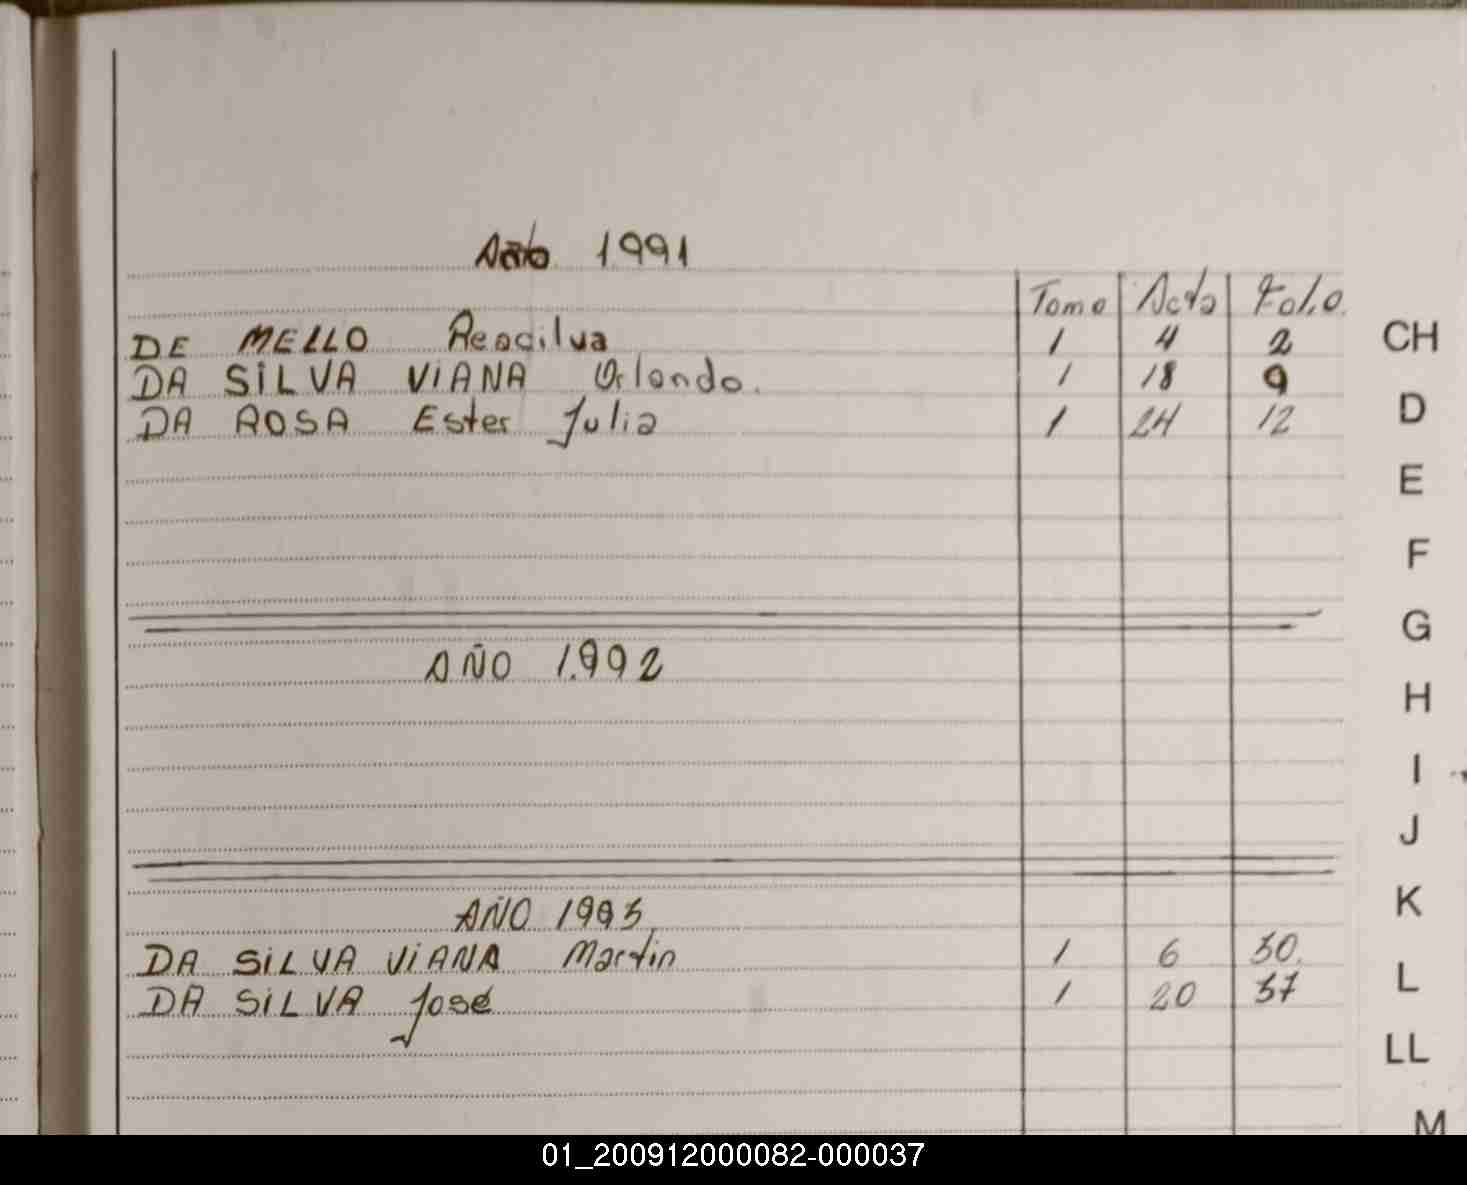 Año 1991
Tomo Acta Folio
DE MELLO 1 4 2
DA SILVA VIANA Orlando. 1 18 9
DA ROSA Ester Julia 1 24 12
AÑO 1.992
AÑO 1993
DA SILVA VIANA Martin 1 6 30.
DA SILVA José 1 20 37
CH
D
E
F
G
H
I
J
K
L
LL
M
01_200912000082-000037